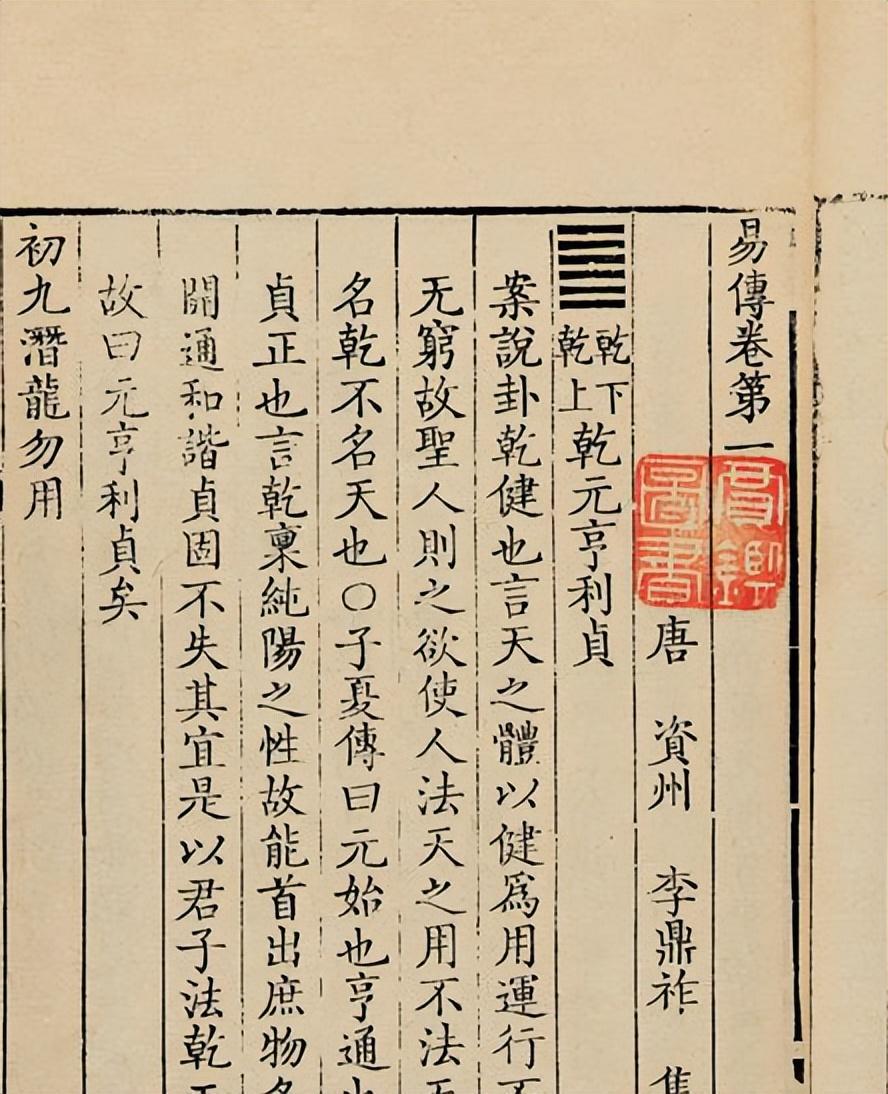 易傳卷第一
唐 資州 李鼎祚 集
乾下
乾上
乾元亨利貞
案說卦乾健也言天之體以健爲用運行不
无窮故聖人則之欲使人法天之用不法天
名乾不名天也〇子夏傳曰元始也亨通也
貞正也言乾稟純陽之性故能首出庶物各
開通和諧貞固不失其宜是以君子法乾而
故曰元亨利貞矣
初九潛龍勿用